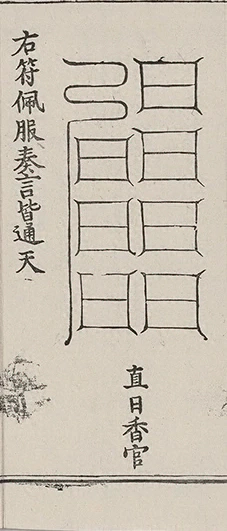 直日香官
右符佩服奏言皆通天